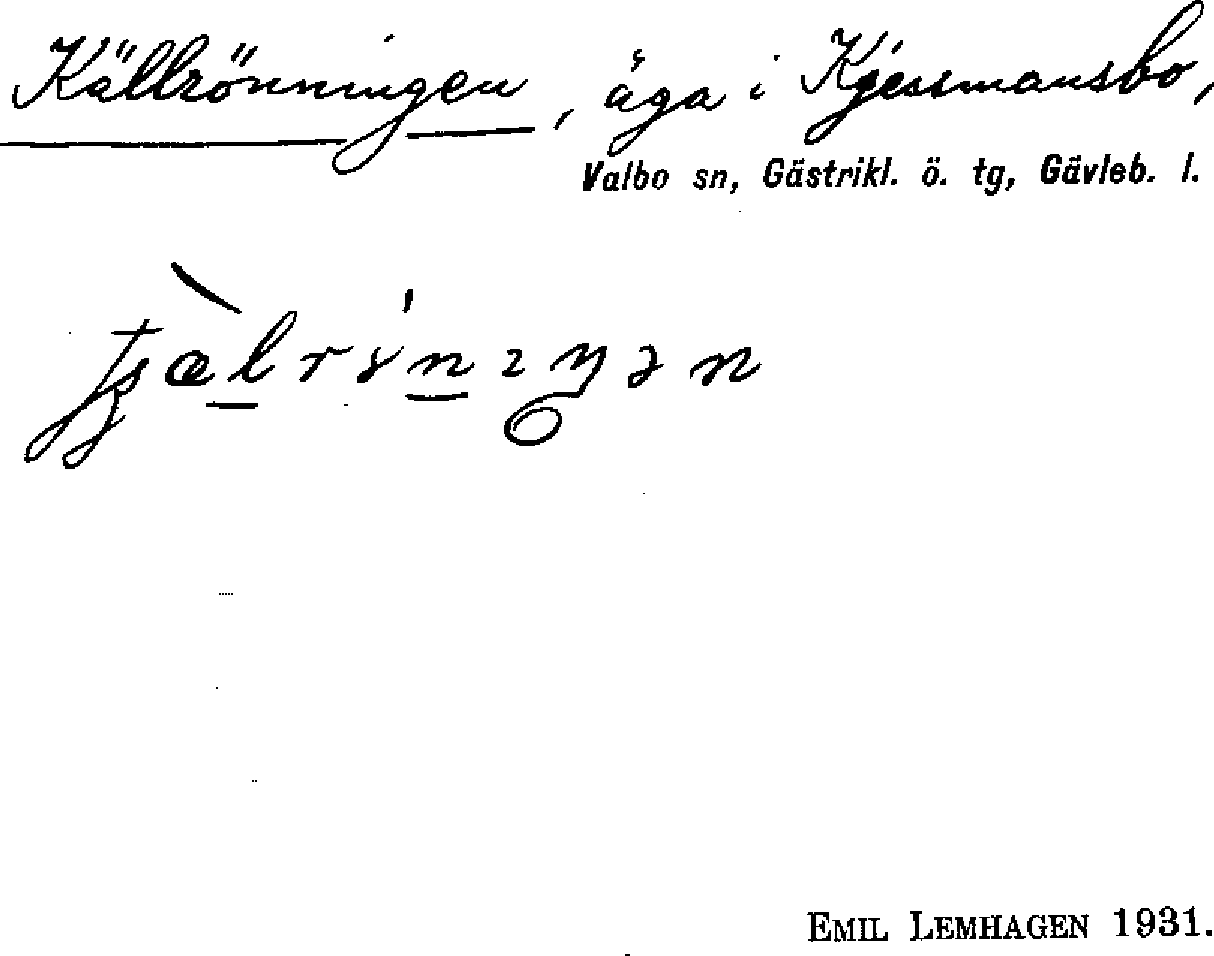 Källrönningen, äga i Kjessmansbo,
Valbo sn, Gästrikl. ö. tg, Gävleb. l.
EMIL LEMHAGEN 1931.